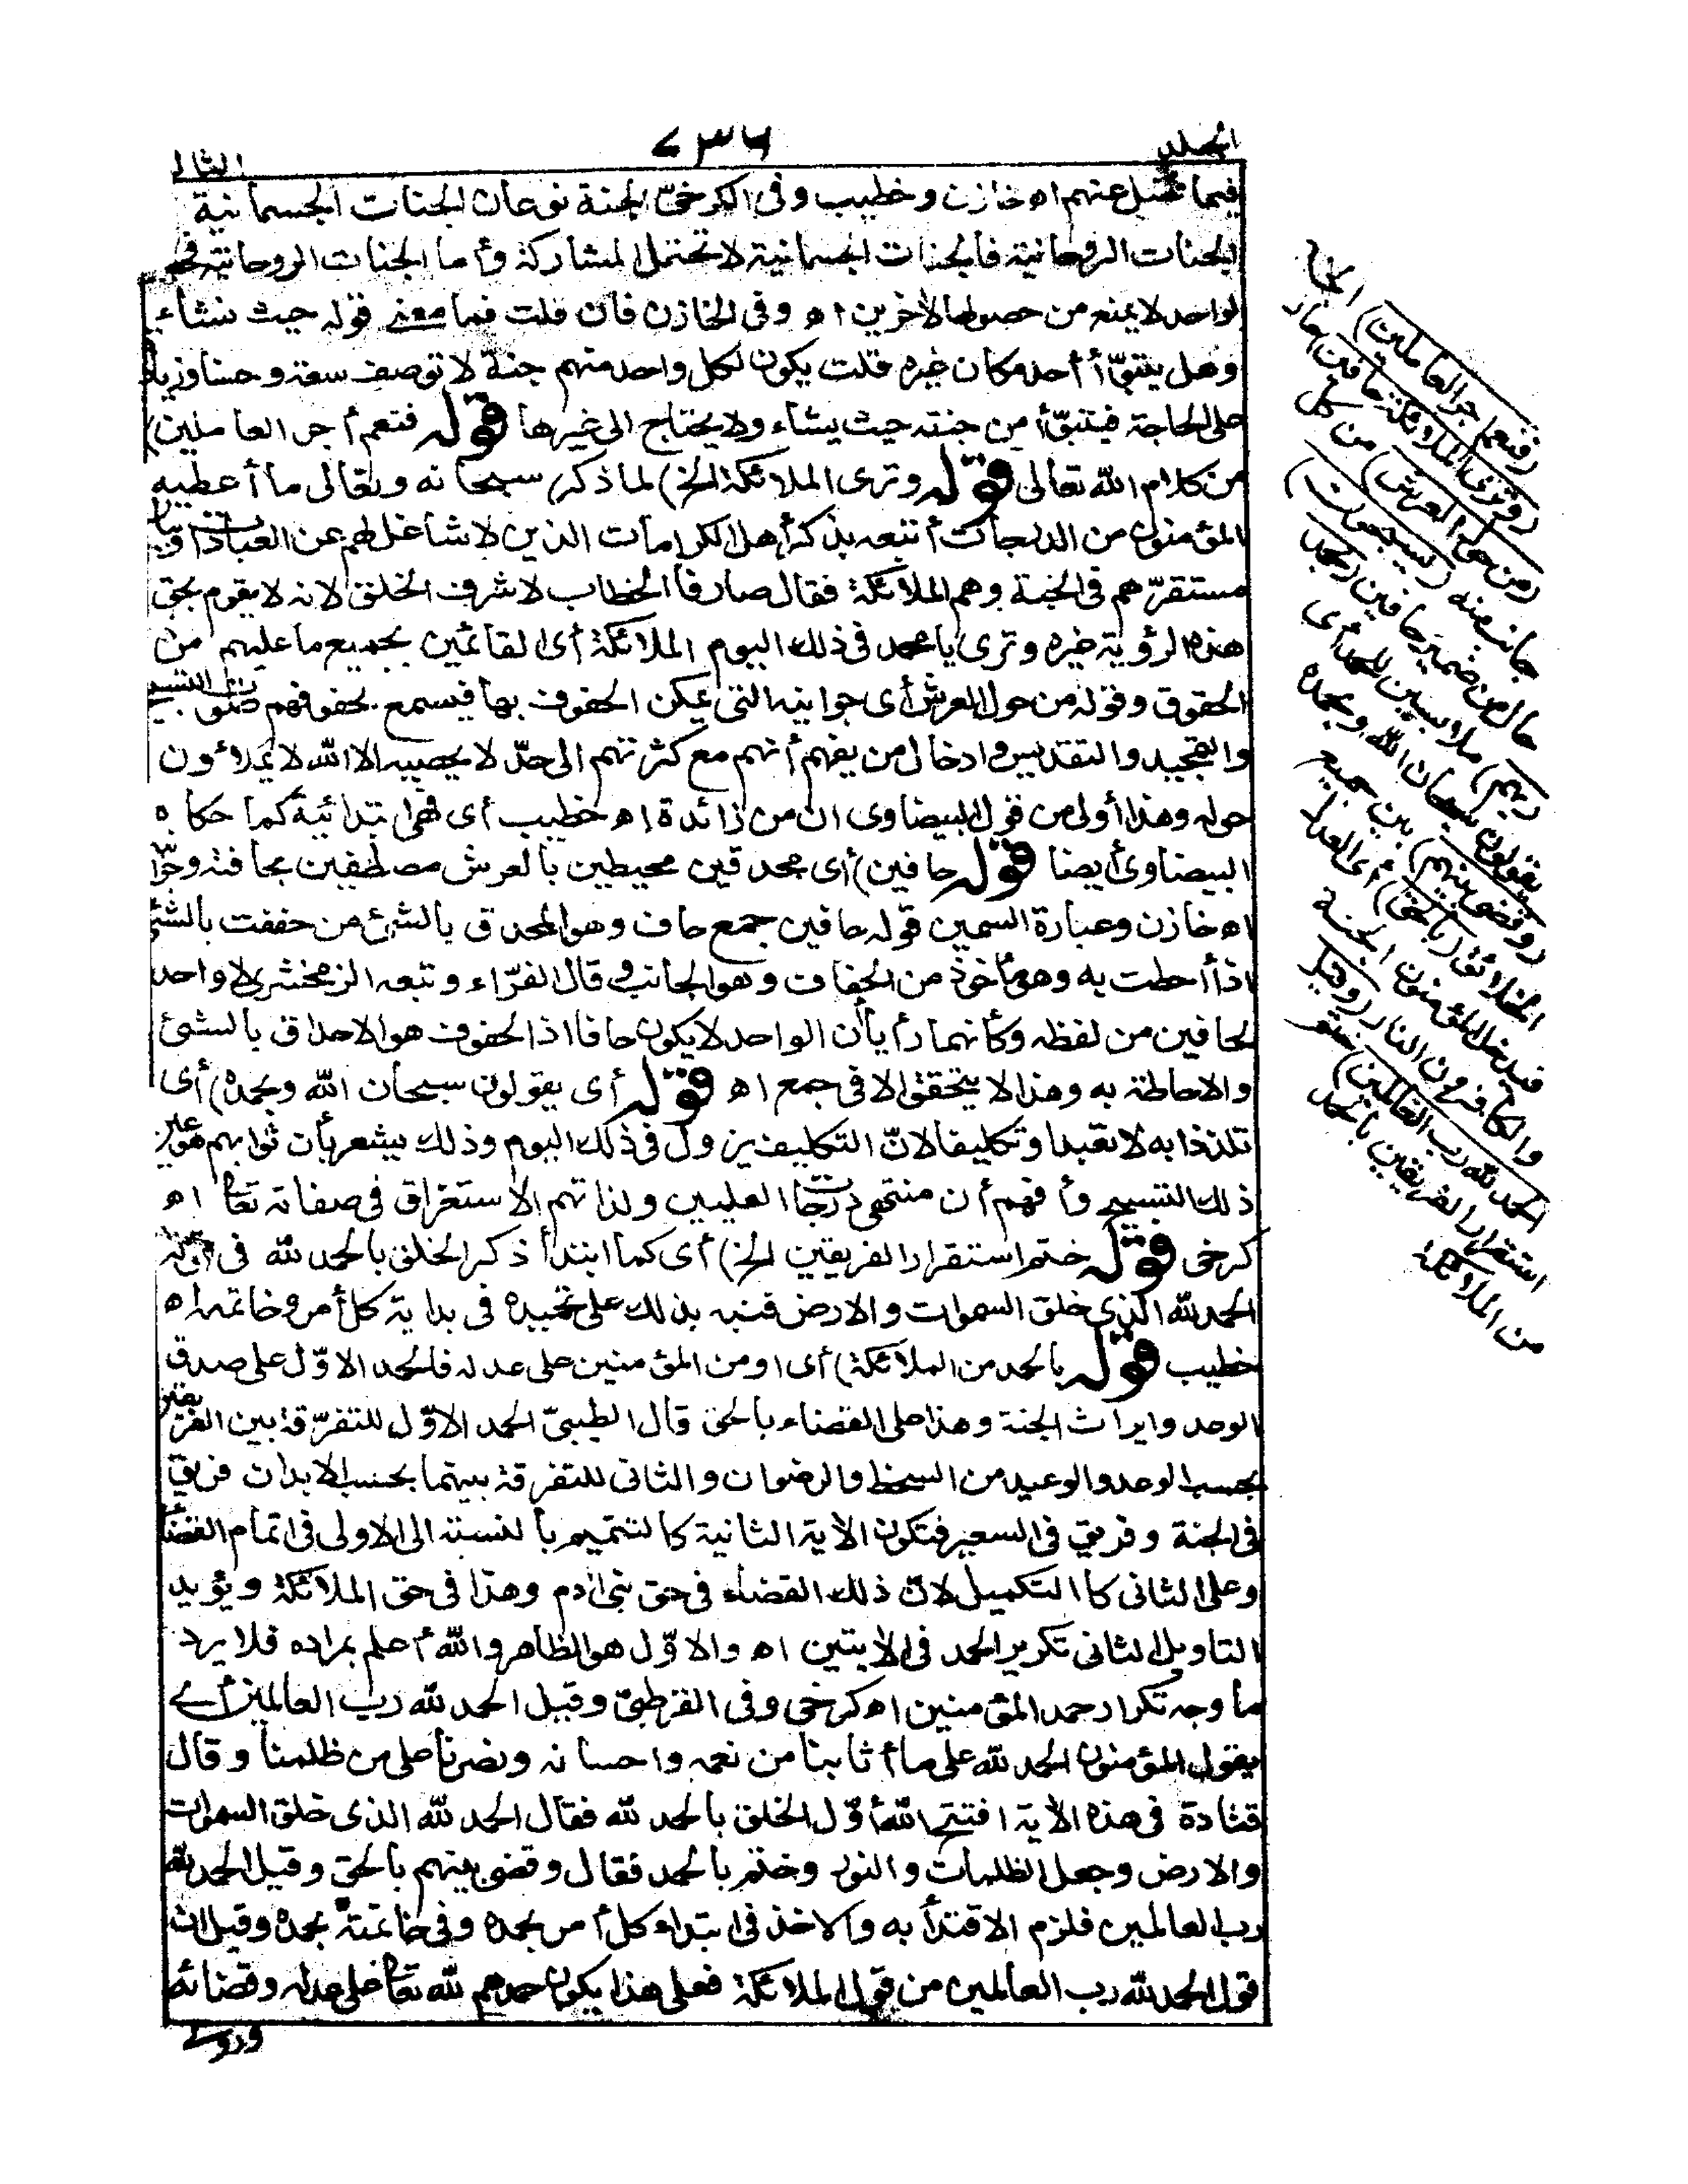 المجلد
٦٣٦
الثالث
فيما تحتمل عنهم اه خازن وخطيب وفى الكرخىّ الجنة نوعان الجنات الجسمانية
الجنات الروحانية فالجنات الجسمانية لا تحتمل المشاركة وأما الجنات الروحانية
لواحد لا يمنع من حصولها لآخرين اه وفى الخازن فان قلت فما معنى قوله حيث نشاء
وهل يتبوّأ أحد مكان غيره قلت يكون لكل واحد منهم جنة لا توصف سعة وحسنا وزيادة
على الحاجة فيتبوّأ من جنته حيث يشاء ولا يحتاج الى غيرها قوله فنعم أجر العاملين)
من كلام الله تعالى قوله وترى الملائكة الخ) لما ذكر سبحانه وتعالى ما أعطيه
المؤمنون من الدرجات أتبعه بذكر أهل الكرامات الذين لا شاغل لهم عن العبادات
مستقرّهم فى الجنة وهم الملائكة فقال صارفا الخطاب لاشرف الخلق لانه لا يقوم بحق
هذه الرؤية غيره وترى يا محمد فى ذلك اليوم الملائكة أى القائمين بجميع ما عليهم من
الحقوق وقوله من حول العرش أى جوانبه التى يمكن الحفوف بها فيسمع لحفوفهم صوت التسبيح
والتمجيد والتقديس وادخال من يفهم أنهم مع كثرتهم الى حدّ لا يحصيه الا الله لا يملائون
حوله وهذا أولى من قول البيضاوى ان من زائدة اه خطيب أى فهى ابتدائية كما حكاه
البيضاوى أيضا قوله حافين) أى محدقين محيطين بالعرش مصطفين بحافته
اه خازن وعبارة السمين قوله حافين جمع حاف وهو المحدق بالشئ من حففت بالشئ
اذا أحطت به وهو مأخوذ من الحفاف وهو الجانب قال الفرّاء وتبعه الزمخشرى لا واحد
لحافين من لفظه وكأنهما رأيا أن الواحد لا يكون حافا اذ الحفوف هو الاحداق بالشئ
والاحاطة به وهذا لا يتحقق الا فى جمع اه قوله أى يقولون سبحان الله وبحمده) أى
تلذذا به لا تعبدا وتكليفا لانّ التكليف يزول فى ذلك اليوم وذلك يشعر بأن ثوابهم هو عين
ذلك التسبيح وأفهم أن منتهى درجات العليين ولذاتهم الاستغراق فى صفاته تعالى اه
كرخى قوله ختم استقرار الفريقين الخ) أى كما ابتدأ ذكر الخلق بالحمد لله فى قوله
الحمد لله الذى خلق السموات والارض فنبه بذلك على تحميده فى بداية كل أمر وخاتمته اه
خطيب قوله بالحمد من الملائكة) أى ومن المؤمنين على عدله فالحمد الاوّل على صدق
الوعد وايراث الجنة وهذا على القضاء بالحق قال الطيبىّ الحمد الاوّل للتفرقة بين الفريقين
بحسب الوعد والوعيد من السخط والرضوان والثانى للتفرقة بينهما بحسب الابدان فريق
فى الجنة وفريق فى السعير فتكون الآية الثانية كالتتميم بالنسبة الى الاولى فى اتمام القضاء
وعلى الثانى كالتكميل لانّ ذلك القضاء فى حق بنى آدم وهذا فى حق الملائكة ويؤيد
التاويل الثانى تكرير الحمد فى الآيتين اه والاوّل هو الظاهر والله أعلم بمراده فلا يرد
ما وجه تكرار حمد المؤمنين اه كرخى وفى القرطبىّ وقيل الحمد لله رب العالمين أى
يقول المؤمنون الحمد لله على ما أثابنا من نعمه واحسانه ونصرنا على من ظلمنا وقال
قتادة فى هذه الآية افتتح الله أوّل الخلق بالحمد لله فقال الحمد لله الذى خلق السموات
والارض وجعل الظلمات والنور وختم بالحمد فقال وقضى بينهم بالحق وقيل الحمد لله
رب العالمين فلزم الاقتداء به والاخذ فى ابتداء كل أمر بحمده وفى خاتمته بحمده وقيل ان
قول الحمد لله رب العالمين من قول الملائكة فعلى هذا يكون حمدهم لله تعالى على عدله وقضائه
وروى
(فنعم أجر العاملين) الجنة
(وترى الملائكة حافين) حال
(من حول العرش) من كل
جانب منه (يسبحون)
حال من ضمير حافين (بحمد
ربهم) ملابسين للحمد أى
يقولون سبحان الله وبحمده
(وقضى بينهم) بين جميع
الخلائق (بالحق) أى العدل
فيدخل المؤمنون الجنة
والكافرون النار (وقيل
الحمد لله رب العالمين) ختم
استقرار الفريقين بالحمد
من الملائكة